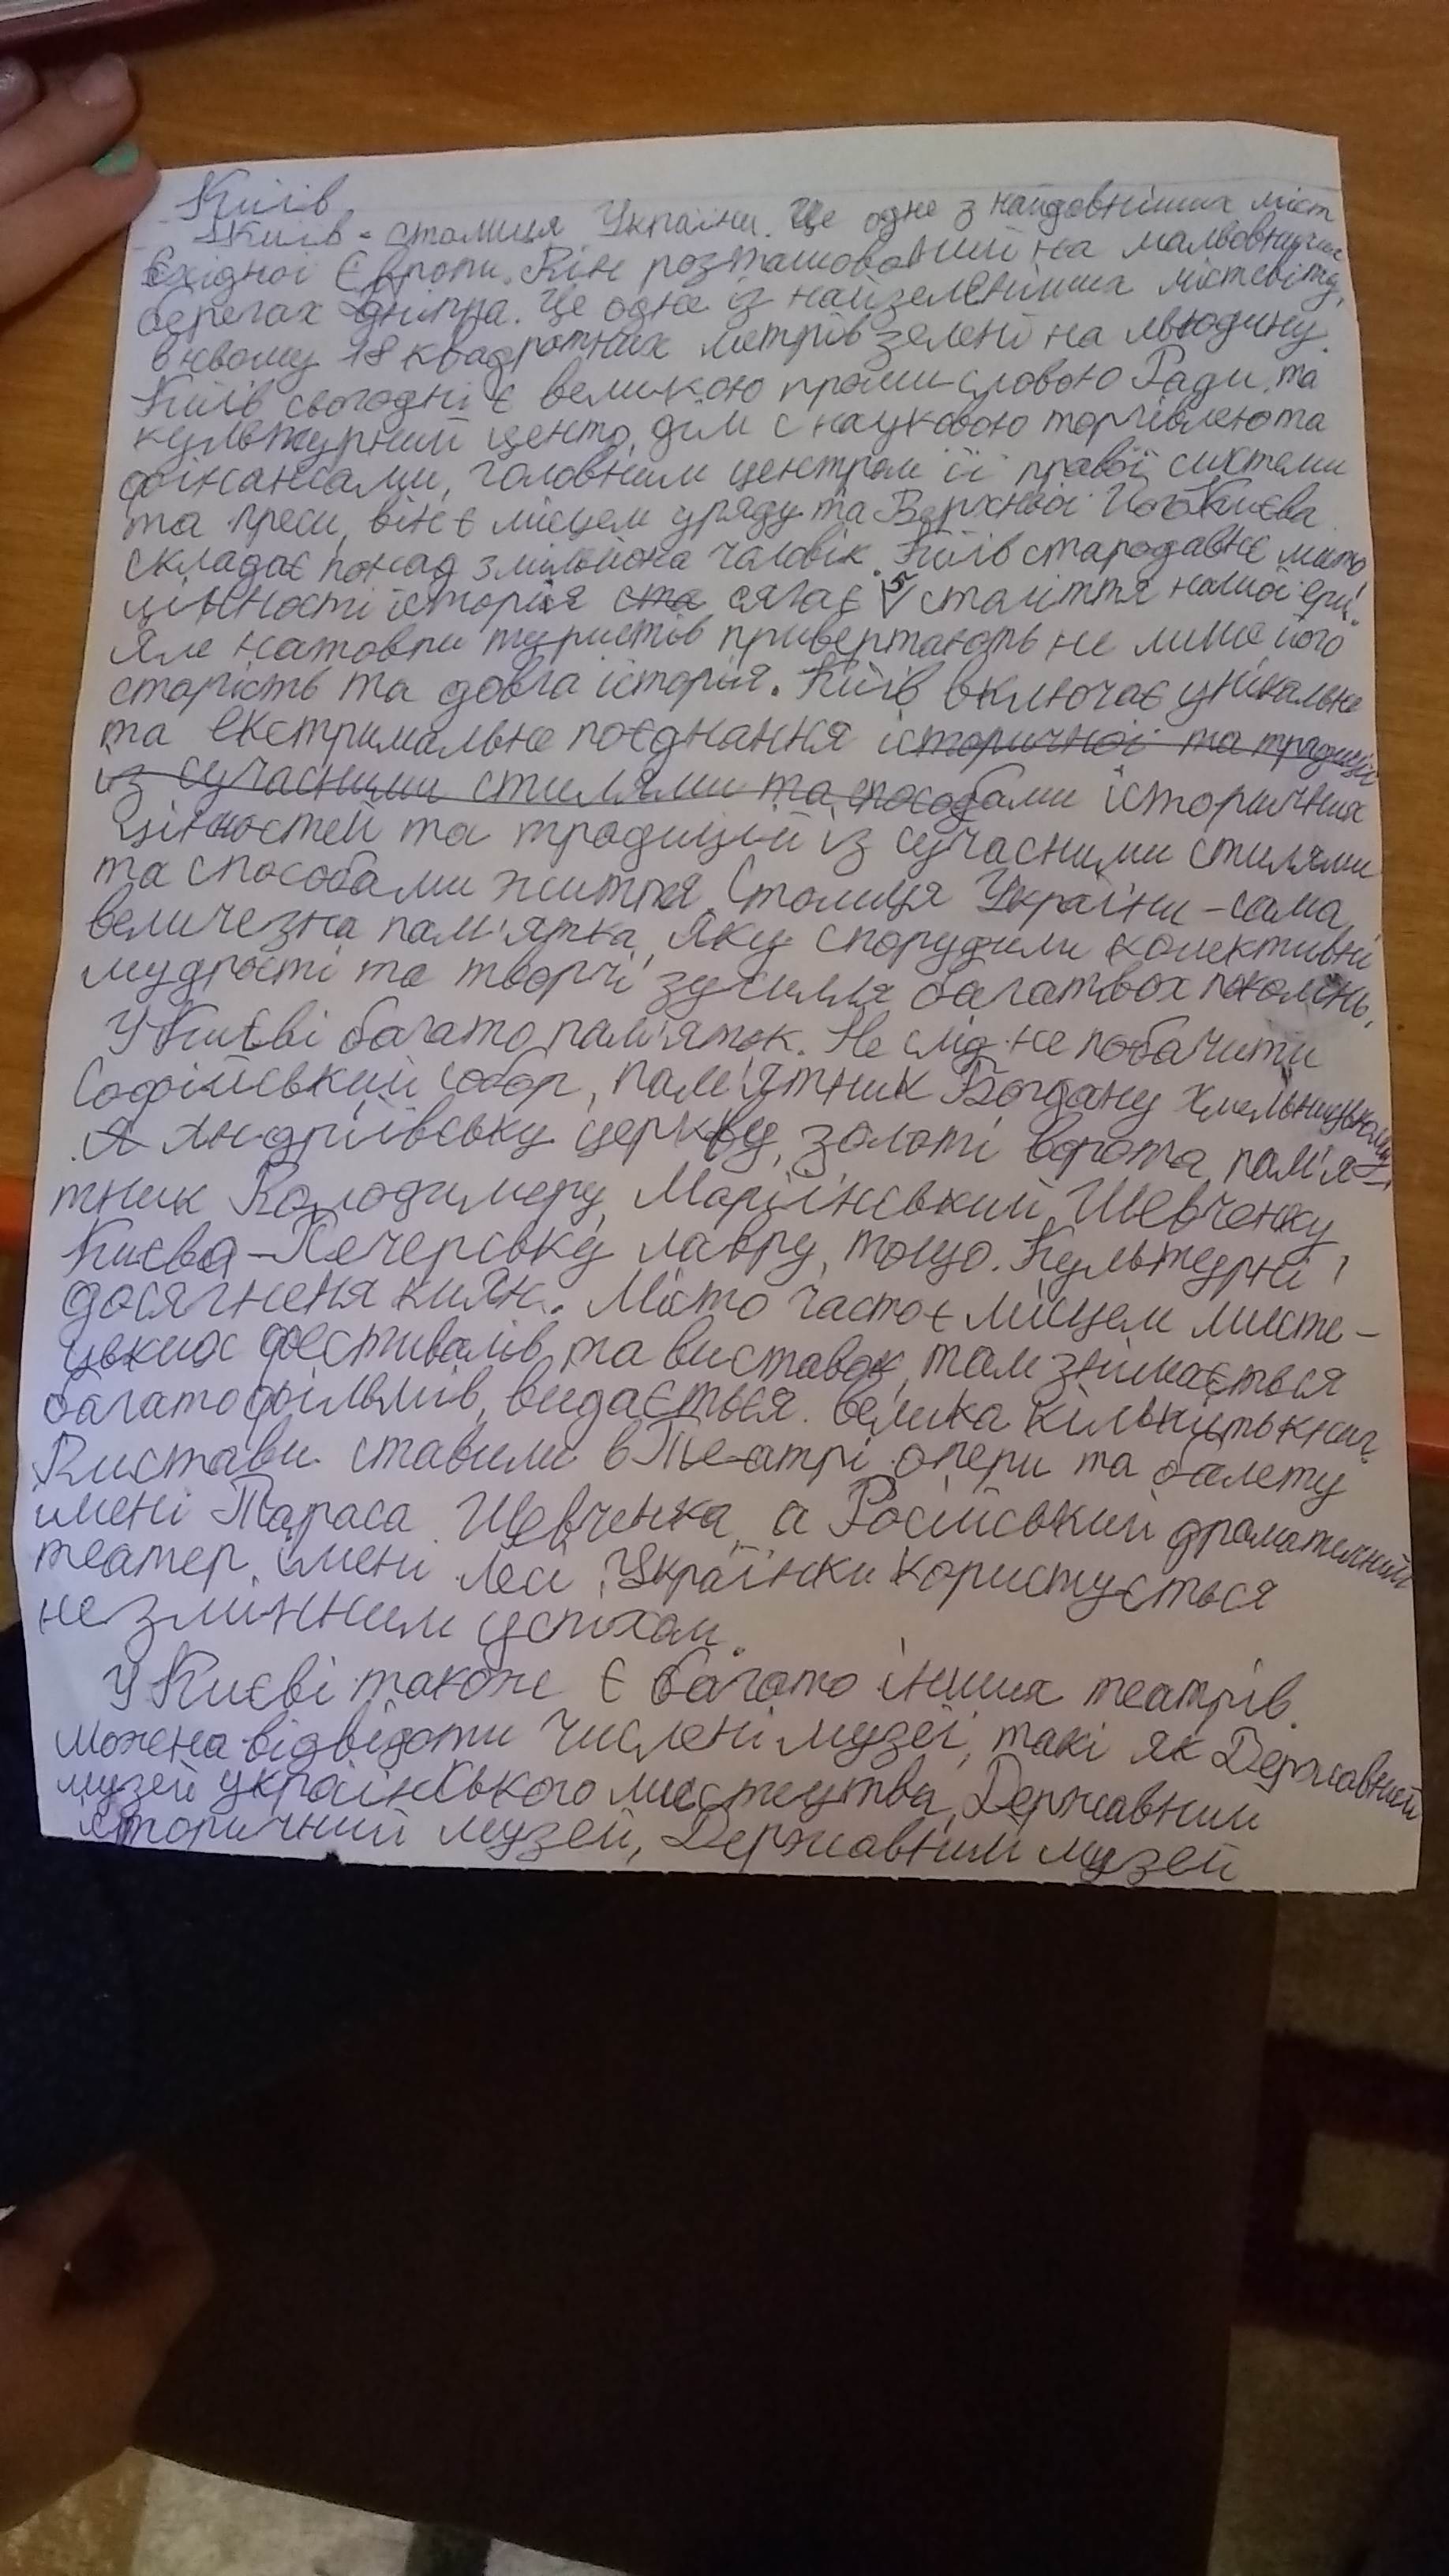 Київ
Київ - столиця України. Це одне з найдовніших міст
Східної Європи. Він розташований на мальовничих
берегах Дніпра. Це одне із найзеленіших міст світу,
в ньому 18 квадратних метрів зелені на людину.
Київ сьогодні є великою промисловою Ради та
культурний центр, дім с науковою торгівлею та
фінансами, головним центром її правої системи
та преси, він є місцем уряду та Верхньої Його Києва
складає понад 3 мільйона чаловік. Київ стародавнє місто
цінності історія ста сягає 5 століття нашої ери.
Але натовпи туристів привертають не лише його
старість та довга історія. Київ включає унікальне
та екстримальне поєднання історичної та традицій
із сучасними стилями та способами історичних
цінностей та традицій із сучасними стилями
та способами життя. Столиця України - сама
величезна пам'ятка, яку спорудили колективні
мудрості та творчі зусилля багатьох поколінь.
У Києві багато пам'яток. Не слід не побачити
Софійський собор, пам'ятник Богдану Хмельницькому
А Андріївську церкву, золоті ворота, пам'я-
тник Володимеру, Маріїнський, Шевченку,
Києво-Печерську лавру, тощо. Культурні
досягненя киян. Місто часто є місцем мисте-
цьких фестивалів та виставок, там знімається
багато фільмів, видається велика кількіть книг.
Вистави ставили в Театрі опери та балету
імені Тараса Шевченка, а Російський драматичний
театер імені Лесі Українки користується
незмінним успіхом.
У Києві також є багато інших театрів.
Можна відвідати числені музеї, такі як Державний
музей українського мистецтва, Державним
історичний музей, Державним музей